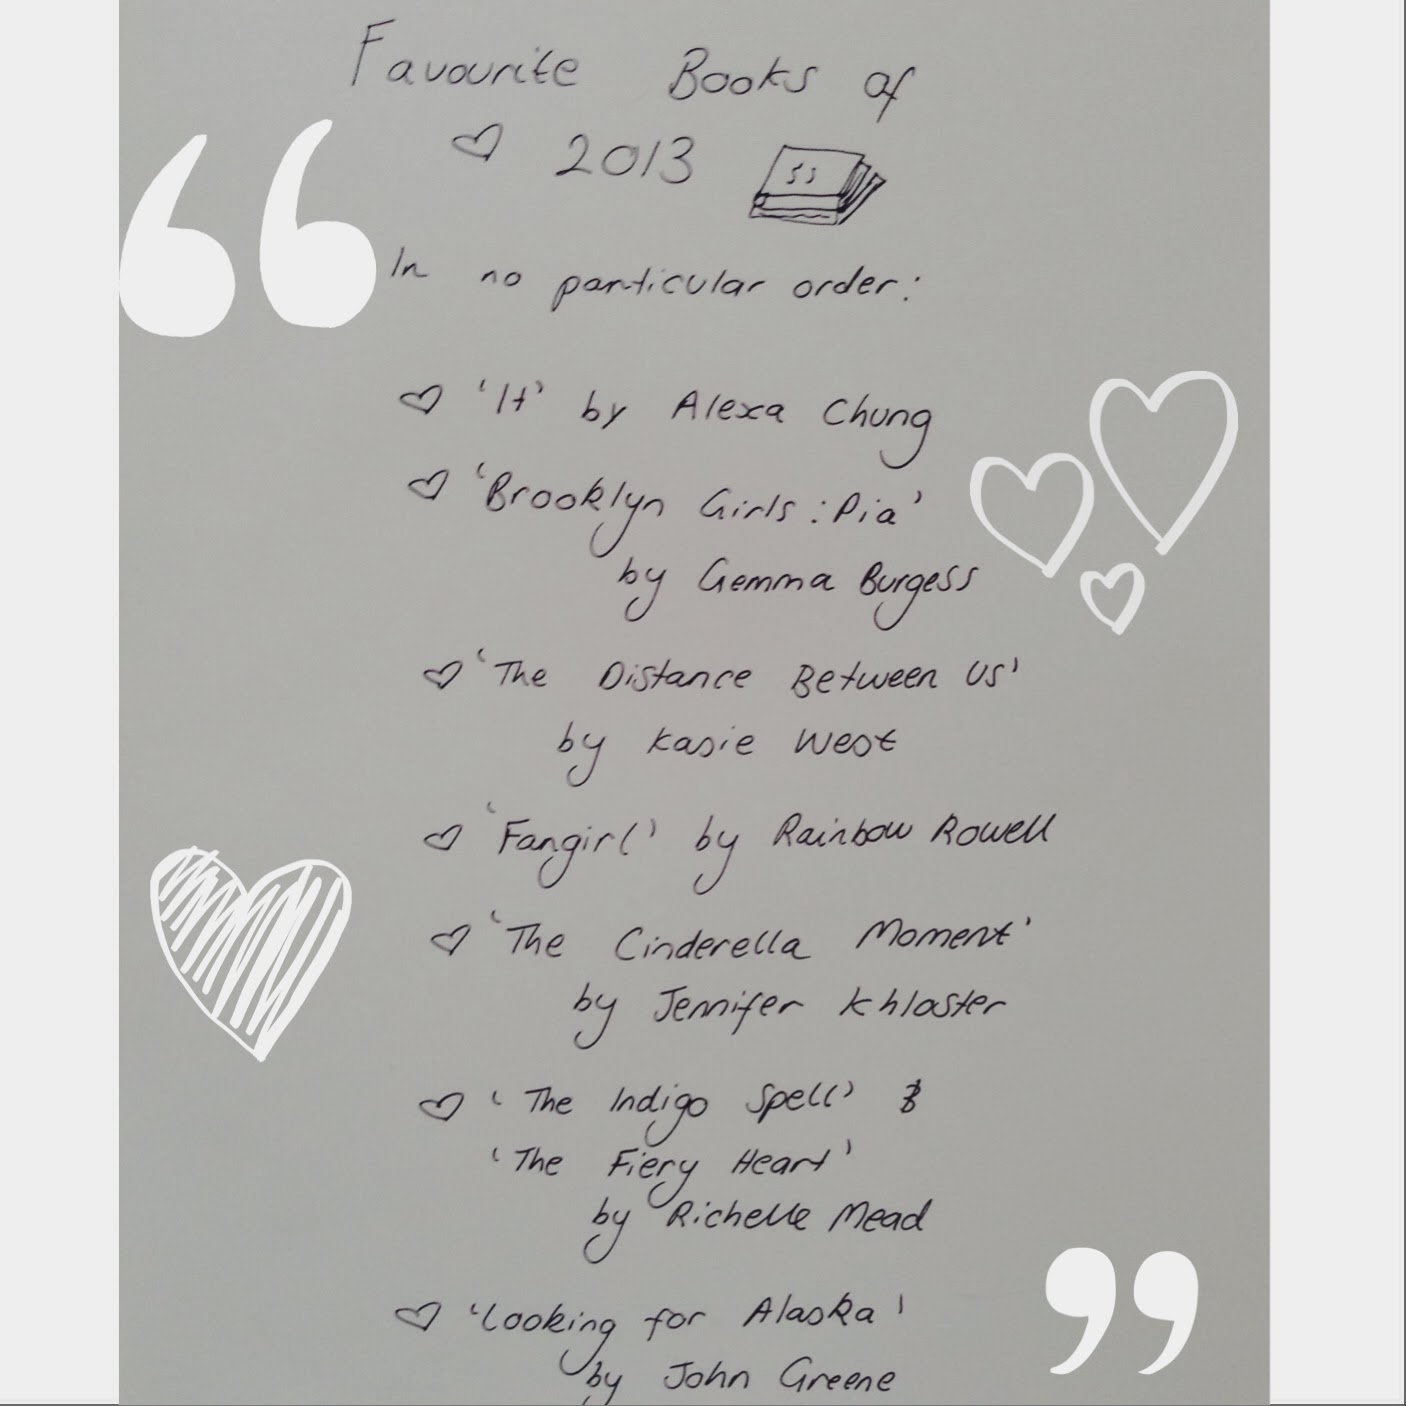 Favourite Books of
♡ 2013
In no particular order:
♡ 'It' by Alexa Chung
♡ 'Brooklyn Girls: Pia'
by Gemma Burgess
♡ 'The Distance Between Us'
by Kasie West
♡ 'Fangirl' by Rainbow Rowell
♡ 'The Cinderella Moment'
by Jennifer Khloster
♡ 'The Indigo Spell' &
'The Fiery Heart'
by Richelle Mead
♡ 'Looking for Alaska'
by John Greene